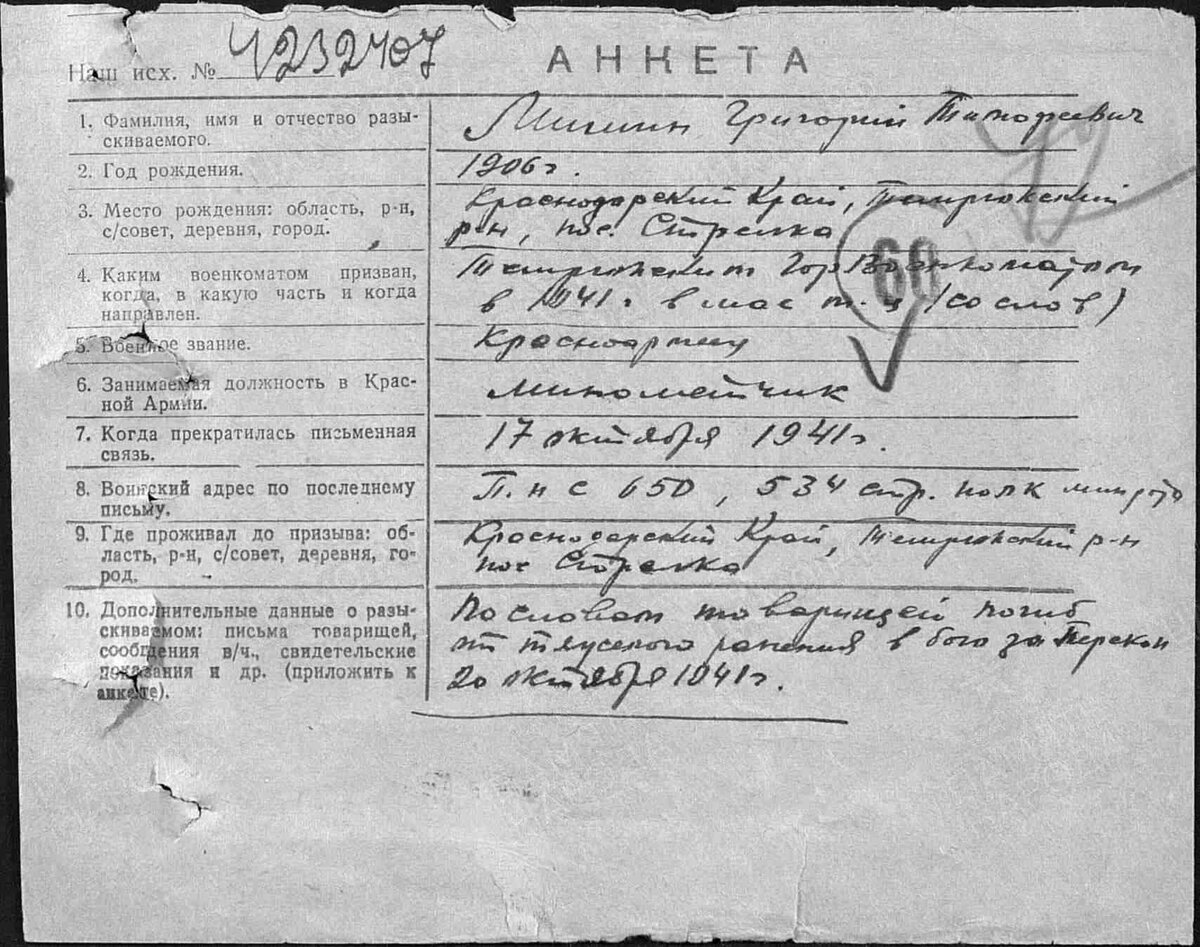 Наш исх. № 4232407 АНКЕТА
1. Фамилия, имя и отчество разы-
скиваемого.
Григорий Тимофеевич
2. Год рождения.
1906 г.
3. Место рождения: область, р-н,
с/совет, деревня, город.
Краснодарский Край, Темрюкский
р-н, пос. Стрелка
4. Каким военкоматом призван,
когда, в какую часть и когда
направлен.
Темрюкским ГорВоенкоматом
в 1941 г (со слов)
5. Военное звание.
Красноармеец
6. Занимаемая должность в Крас-
ной Армии.
минометчик
7. Когда прекратилась письменная
связь.
17 октября 1941 г.
8. Воинский адрес по последнему
письму.
П.п с 650, 534 стр. полк
9. Где проживал до призыва: об-
ласть, р-н, с/совет, деревня, го-
род.
Краснодарский Край, Темрюкский р-н
пос Стрелка
10. Дополнительные данные о разы-
скиваемом: письма товарищей,
сообщения в/ч., свидетельские
показания и др. (приложить к
анкете).
По словам товарищей погиб
от тяжелого ранения в бою за Перекоп
20 октября 1941 г.
60